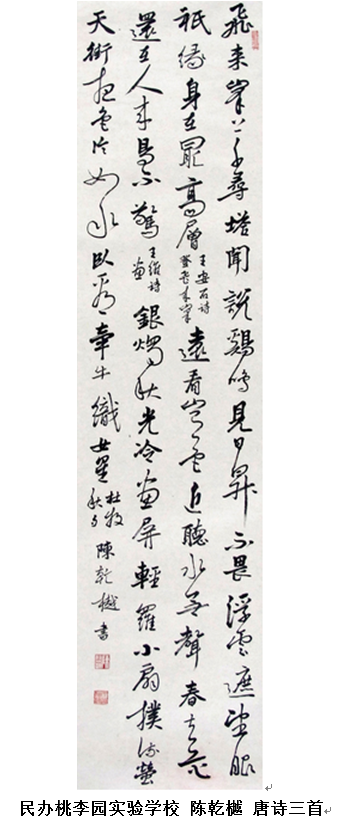 飛来峯上千尋塔聞說鷄鳴見日昇不畏浮雲遮望眼
祇緣身在最高層 王安石詩登飛来峯 遠看山有色近聽水無聲春去花
還在人来鳥不驚 王維詩画 銀燭秋光冷画屏輕羅小扇撲流螢
天街夜色涼如水臥看牽牛織女星 杜牧秋夕 陳乾樾書
民办桃李园实验学校 陈乾樾 唐诗三首